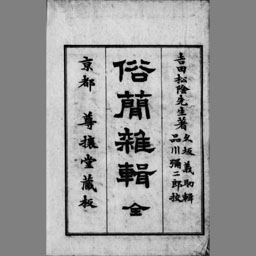 吉田松陰先生著
久坂義助輯
品川彌二郎挍
俗簡雜輯 全
京都 尊攘堂藏板